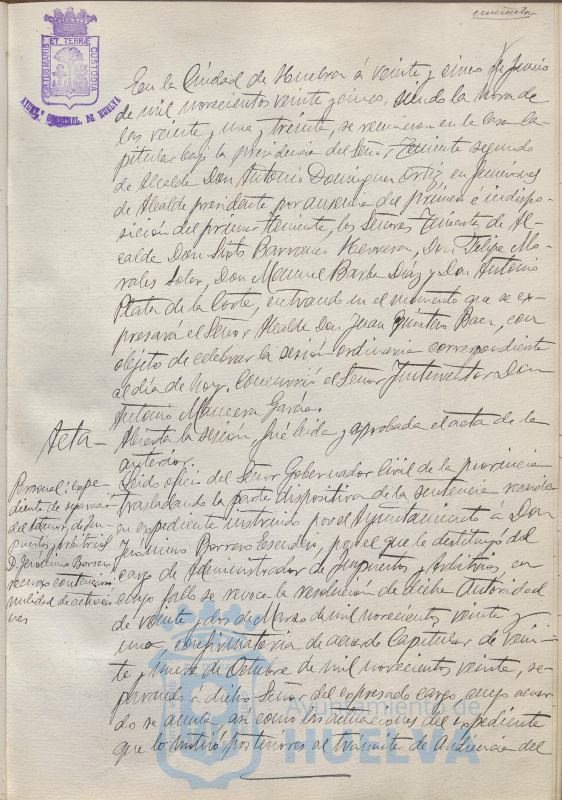 cincuenta
PORTUS MARIS ET TERRÆ CUSTODIA
AYUNT.º CONSTNAL. DE HUELVA
En la Ciudad de Huelva á veinte y cinco de Junio
de mil novecientos veinte y cinco, siendo la hora de
las veinte y una y treinta, se reunieron en la Casa Ca-
pitular bajo la presidencia del Señor Teniente segundo
de Alcalde Don Antonio Dominguez Ortiz en funciones
de Alcalde presidente por ausencia del primero é indispo-
sición del primer Teniente, los Señores Tenientes de Al-
calde Don Sixto Barranco Herrera, Don Felipe Mo-
rales Soler, Don Manuel Barba Diaz y Don Antonio
Plata de la Corte, entrando en el momento que se ex-
presará el Señor Alcalde Don Juan Quintero Baez, con
objeto de celebrar la sesión ordinaria correspondiente
al dia de hoy. Concurrió el Señor Interventor Don
Antonio Mancera Garcia.
Acta-
Abierta la sesión, fué leida y aprobada el acta de la
anterior.
Personal: expe-
diente de separación
del
puestos y Arbitrios
D. Jeronimo Borrero
recurso contencioso
nulidad de actuacio-
nes
Leido oficio del Señor Gobernador Civil de la provincia
trasladando la parte dispositiva de la sentencia recaida
en expediente instruido por el Ayuntamiento a Don
Jeronimo Borrero Escudero, por el que le destituyó del
cargo de Administrador de Impuestos y Arbitrios, en
cuyo fallo se revoca la resolución de dicha Autoridad
de veinte y dos de Marzo de mil novecientos veinte y
uno, confirmatoria de acuerdo Capitular de vein-
te y nueve de Octubre de mil novecientos veinte, se-
parando á dicho Señor del expresado cargo, cuyo acuer-
do se anula, asi como las actuaciones del expediente
que lo motivó posteriores al trámite de Audiencia del
Ayuntamiento de
HUELVA